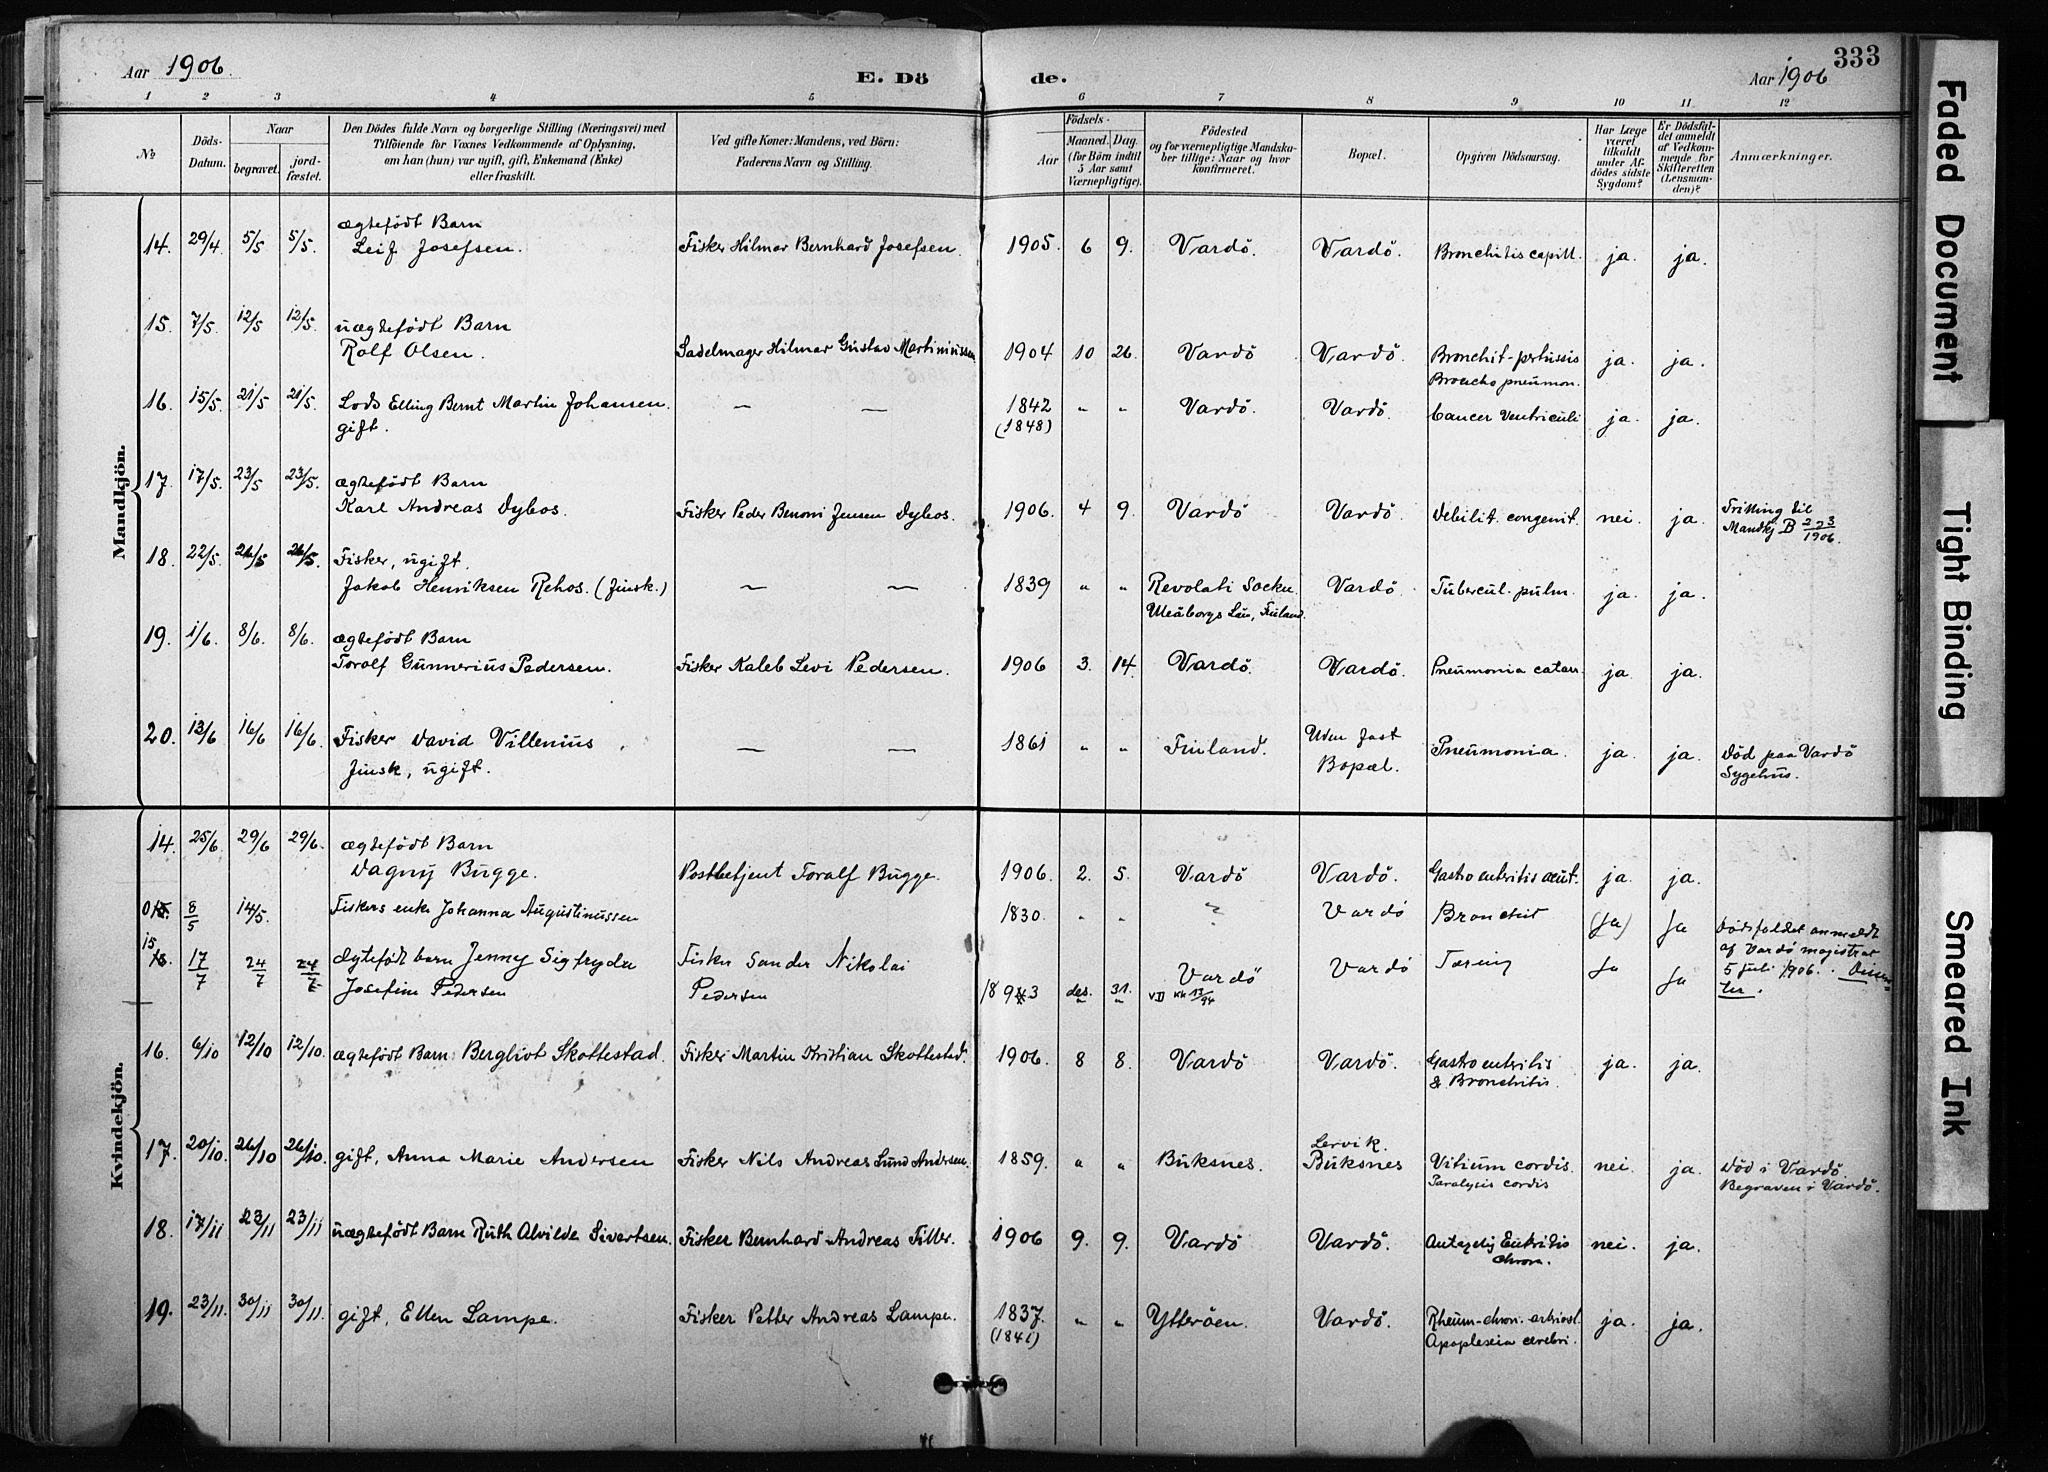 333
Aar 1906.
E. Döde.
Aar 1906
1 2 3 3 4 5 6 7 8 9 10 11 12
No
Döds-Datum.
Naar
begravet. jord-fæstet.
Den Dödes fulde Navn og borgerlige Stilling (Næringsvei) med
Tilföiende for Voxnes Vedkommende af Oplysning,
om han (hun) var ugift, gift, Enkemand (Enke)
eller fraskilt.
Ved gifte Koner: Mandens, ved Börn:
Faderens Navn og Stilling.
Födsels-
Aar
Maaned. Dag.
(for Börn indtil
5 Aar samt
Værnepligtige).
Födested
og for værnepligtige Mandska-
ber tillige: Naar og hvor
konfirmeret.
Bopæl.
Opgiven Dödsaarsag.
Har Læge
været
tilkaldt
under Af-
dödes sidste
Sygdom?
Er Dödsfal-
det anmeldt
af Vedkom-
mende for
Skifteretten
(Lensman-
den)?
Anmærkninger.
Mandkjön.
14. 29/4 5/5 5/5. ægtefödt Barn
Leif Josefsen. Fisker Hilmar Bernhard Josefsen. 1905. 6 9. Vardö. Vardö. Bronchitis capill. ja. ja.
15. 7/5. 12/5 12/5. uægtefödt Barn
Rolf Olsen. Sadelmager Hilmar Gustav Martiniussen 1904 10 26. Vardö Vardö. Bronchit-pertussis ja. ja.
Broncho pneumon.
16. 15/5. 21/5 21/5. Lods Elling Bernt Martin Johansen. — — 1842 " " Vardö. Vardö. Cancer ventriculi ja. ja.
gift. (1848)
17. 17/5. 23/5 23/5. ægtefödt Barn
Karl Andreas Dybos. Fisker Peder Benoni Jensen Dybos. 1906. 4 9. Vardö Vardö. Debilit. congenit. nei. ja. Tvilling til
Mandkj B 223/1906.
18. 22/5. 26/5 26/5. Fisker, ugift.
Jakob Henriksen Rehos. (finsk.) — — 1839 " " Revolati Socku. Vardö. Tubercul. pulm. ja. ja.
Uleåborgs Län, Finland.
19. 1/6. 8/6. 8/6. ægtefödt Barn
Toralf Gunnerius Pedersen. Fisker Kaleb Levi Pedersen. 1906 3. 14. Vardö. Vardö. Pneumonia catarr. ja ja.
20. 13/6 16/6 16/6. Fisker David Villenius — — 1861 " " Finland. Uden fast Bopæl. Pneumonia. ja. ja. Död paa Vardö
finsk, ugift. Sygehus.
Kvindekjön.
14. 25/6. 29/6 29/6. ægtefödt Barn
Dagny Bugge. Postbetjent Toralf Bugge. 1906. 2. 5. Vardö Vardö. Gastroenteritis acut. ja. ja.
015. 8/5 14/5. Fiskers enke Johanna Augustinussen 1830. " " " Vardö Bronchit (ja) ja Dödsfaldet anmeldt
af Vardö magistrat
5 juli 1906.
15 17/7 24/7 24/7 Ægtefödt barn Jenny Sigfryda Fisker Sander Nikolai Vardö Vardö Tæring ja ja
Josefine Pedersen Pedersen 1893 des. 31. VII 13/94
16. 6/10 12/10 12/10. ægtefödt Barn: Bergliot Skottestad. Fisker Martin Kristian Skottestad. 1906. 8 8. Vardö Vardö. Gastroenteritis ja. ja.
& Bronchitis.
17. 20/10. 26/10 26/10. gift, Anna Marie Andersen Fisker Nils Andreas Lund Andersen. 1859. " " Buksnes. Lervik. Buksnes Vitium cordis. nei. ja. Död i Vardö.
Paralysis cordis Begraven i Vardö.
18. 17/11 23/11 23/11 uægtefödt Barn Ruth Alvilde Sivertsen. Fisker Bernhard Andreas Tiller. 1906 9. 9. Vardö Vardö. Enteritis nei. ja.
chron.
19. 23/11. 30/11 30/11. gift, Ellen Lampe. Fisker Petter Andreas Lampe. 1837. " " Ytteröen. Vardö. Rheum-chron. ja. ja.
(1841) Apoplexia cerebri.
Faded Document
Tight Binding
Smeared Ink